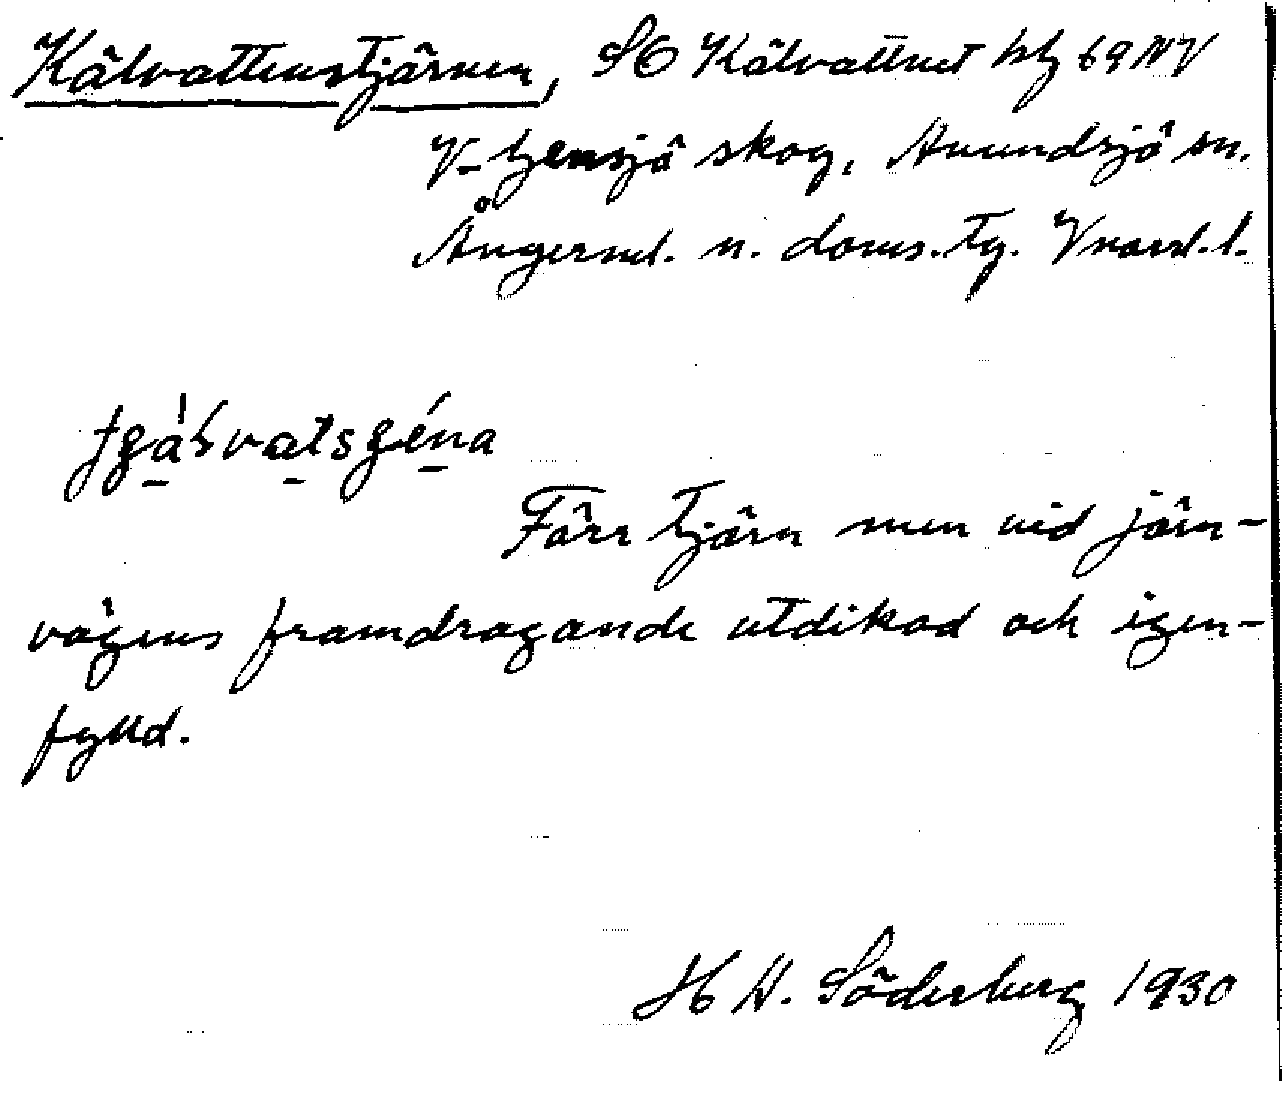 Kälvattenstjärnen, SO Kälvattnet bl 69 NV
V. Gensjö skog, Anundsjö sn.
Ångerml. n. doms. tg. Vnorrl. l.
Förr tjärn men vid järn-
vägens framdragande utdikad och igen-
fylld.
H W. Söderberg 1930